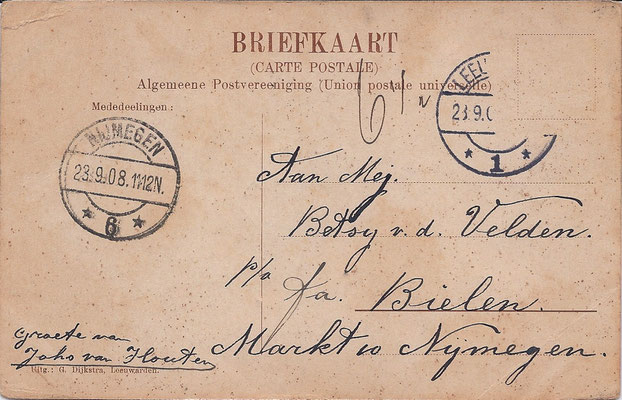 BRIEFKAART
(CARTE POSTALE)
Algemeene Postvereeniging (Union postale universelle)
Mededeelingen:
NIJMEGEN
23.9.08.11-12N.
6
LEEU
23.9.0
1
Aan Mej.
Betsy v. d. Velden.
p/a fa. Bielen.
Markt 10 Nijmegen.
Groete van
Johs van Houten
Uitg.: G. Dijkstra, Leeuwarden.